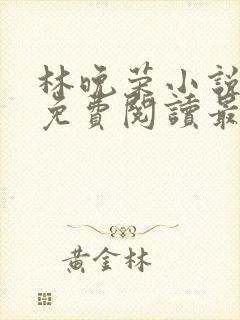 林晚荣小說
免費閱讀最
黃金林